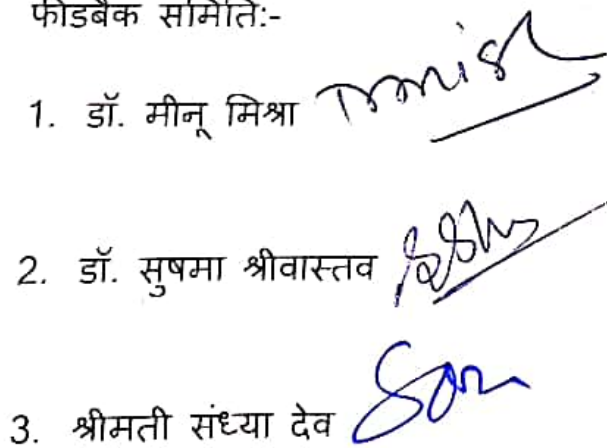 फीडबैक समिति:-
1. डॉ. मीनू मिश्रा
2. डॉ. सुषमा श्रीवास्तव
3. श्रीमती संध्या देव